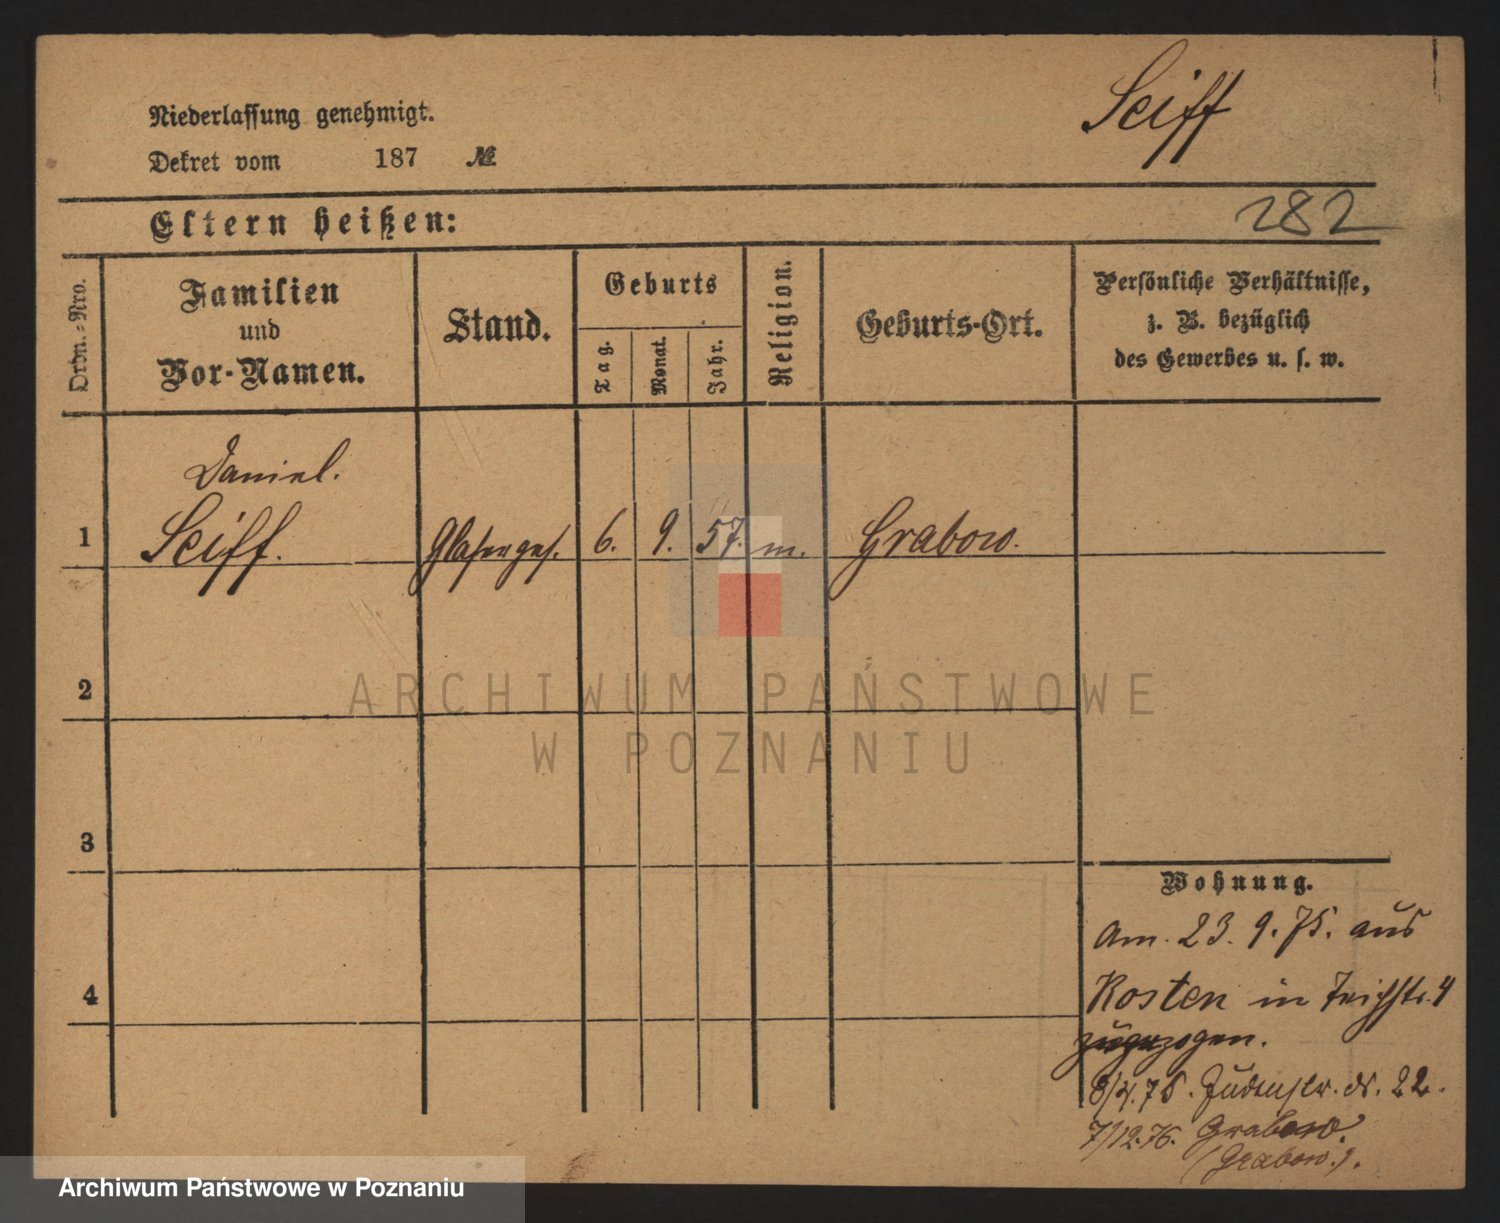 Seiff
Niederlassung genehmigt.
Dekret vom 187 №
Eltern heißen:
282
Ordn.=Nro.
Familien
und
Vor-Namen.
Stand.
Geburts
Tag.
Monat.
Jahr.
Religion.
Geburts-Ort.
Persönliche Verhältnisse,
z. B. bezüglich
des Gewerbes u. s. w.
Daniel.
1 Seiff. Glaserges. 6. 9. 57. m. Grabow.
2
ARCHIWUM PAŃSTWOWE
W POZNANIU
3
Wohnung.
Am. 23. 9. 75. aus
4
Kosten in Teichstr. 4
zugezogen.
75. Judenstr. 22.
7/12.76. Grabow.
(Grabow.).
Archiwum Państwowe w Poznaniu